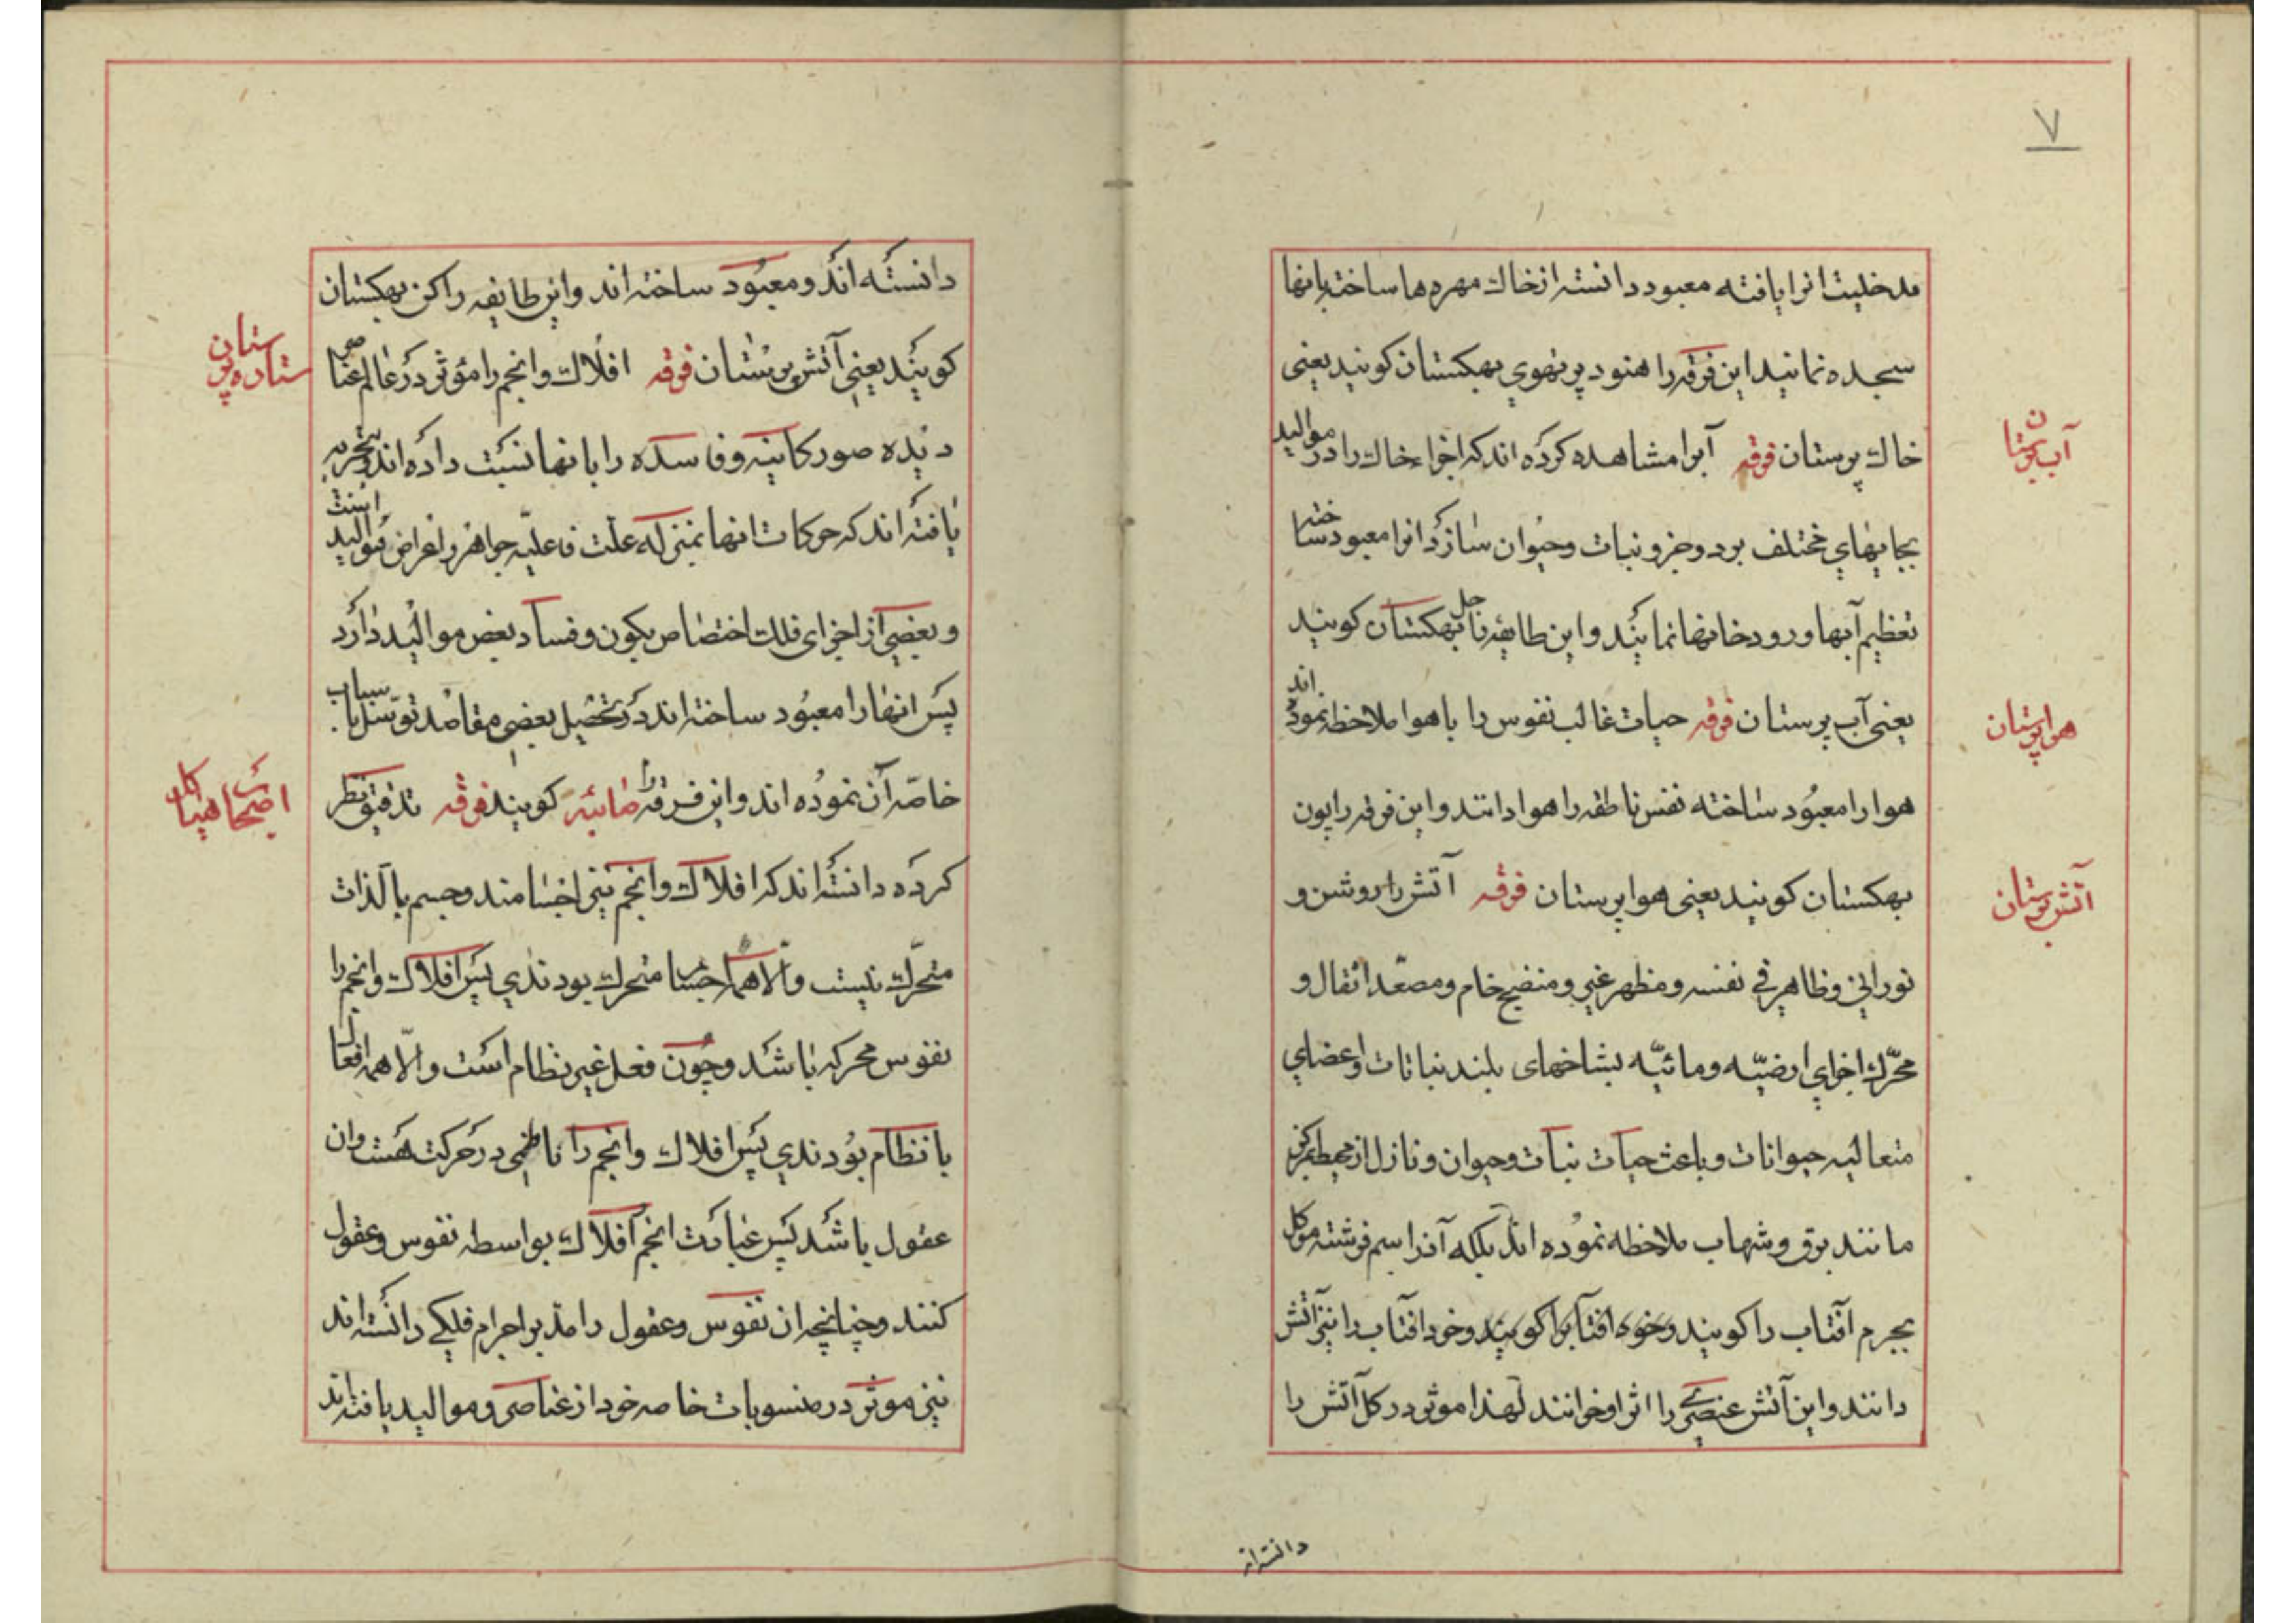 ۷
مدخلیت انرا یافته معبود دانسته ازخاك مهره‌ها ساخته بانها
سجده نمایند این فرقه را هنود پرتهوی بهکستان کویند یعنی
خاك پرستان فرقه آبرا مشاهده کرده اند که اجزاء خاك را در موالید
بجایهای مختلف برد وجزو نبات وحیوان سازد انرا معبود ساخته
تعظیم آبها ورودخانها نمایند واین طایفه را جل بهکستان کویند
یعنی آب پرستان فرقه حیات غالب نفوس را باهوا ملاحظه نموده اند
هوا را معبود ساخته نفس ناطقه را هوا دانند واین فرقه را پون
بهکستان کویند یعنی هوا پرستان فرقه آتش را روشن و
نورانی وظاهر فی نفسه ومظهر غیر ومنضج خام ومصعّد اثقال و
محرّك اجزای ارضیّه ومائیّه بشاخهای بلند نباتات واعضای
متعالیه حیوانات وباعث حیات نبات وحیوان ونازل از محیط بمرکز
مانند برق وشهاب ملاحظه نموده اند بلکه آنرا اسم فرشته موکل
بجرم آفتاب را کویند وخوه افتاب را کویند وخود افتاب را نیز آتش
دانند واین آتش عنصری را اثر او خوانند لهذا موثر در کل آتش را
آب پرستان
هوا پرستان
آتش پرستان
دانسته اند
دانسته اند ومعبود ساخته اند واین طایفه را اکن بهکستان
کویند یعنی آتش پرستان فرقه افلاك وانجم را مؤثر در عالم عناصر
دیده صور کاینه وفاسده را بانها نسبت داده اند وبتجربه
یافته اند که حرکات انها بمنزله علت فاعلیّه جواهر واعراض موالید است
وبعضی از اجزای فلك اختصاص بکون وفساد بعض موالید دارد
پس انها را معبود ساخته اند در تحصیل بعضی مقاصد توسّل باسباب
خاصّه آن نموده اند واین فرقه را صابئه کویند فرقه تدقیق نظر
کرده دانسته اند که افلاك وانجم نیز اجسامند وجسم بالذات
متحرّك نیست والّا همه اجسام متحرك بودندی پس افلاك وانجم را
نفوس محرکه باشد وچون فعل غیر نظام است والّا همه افعال
بانظام بودندی پس افلاك وانجم را ناظمی در حرکت هست وان
عقول باشد پس عبادت انجم افلاك بواسطه نفوس وعقول
کنند وچنانچه ان نفوس وعقول را مدبر اجرام فلکی دانسته اند
نیز موثر در منسوبات خاصه خود از عناصر وموالید یافته اند
ستاره پرستان
اصحاب هیاکل